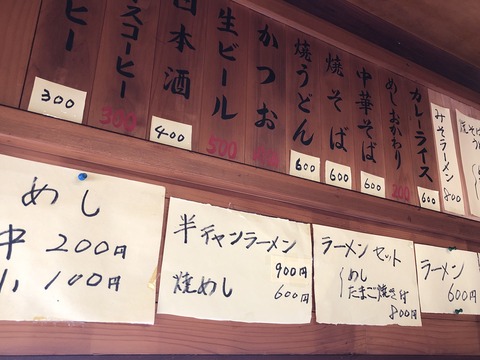 ヒー
300
スコーヒー
300
日本酒
400
生ビール
500
かつお
焼うどん
600
焼そば
600
中華そば
600
めしおかわり
200
カレーライス
600
みそラーメン
800
焼そば
めし
中 200円
小 100円
半チャンラーメン
900円
焼めし 600円
ラーメンセット
めし
たまご焼き付
800円
ラーメン
600円